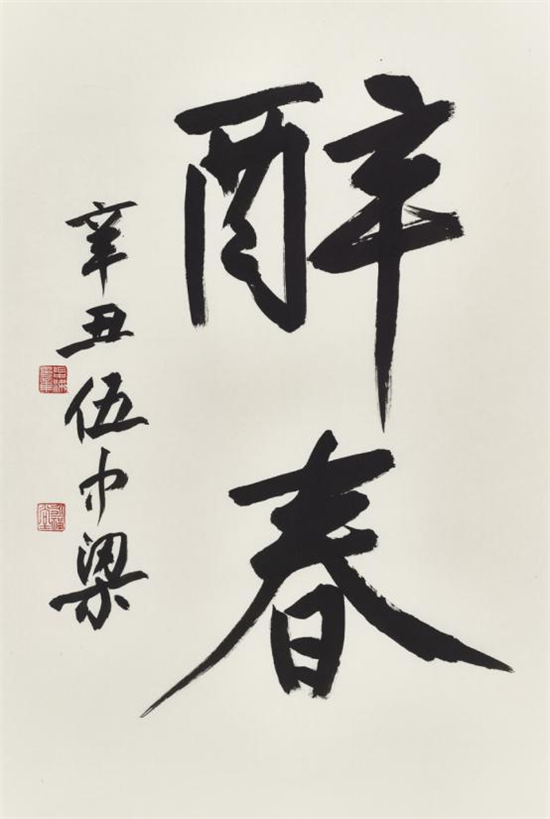 醉春
辛丑伍中梁